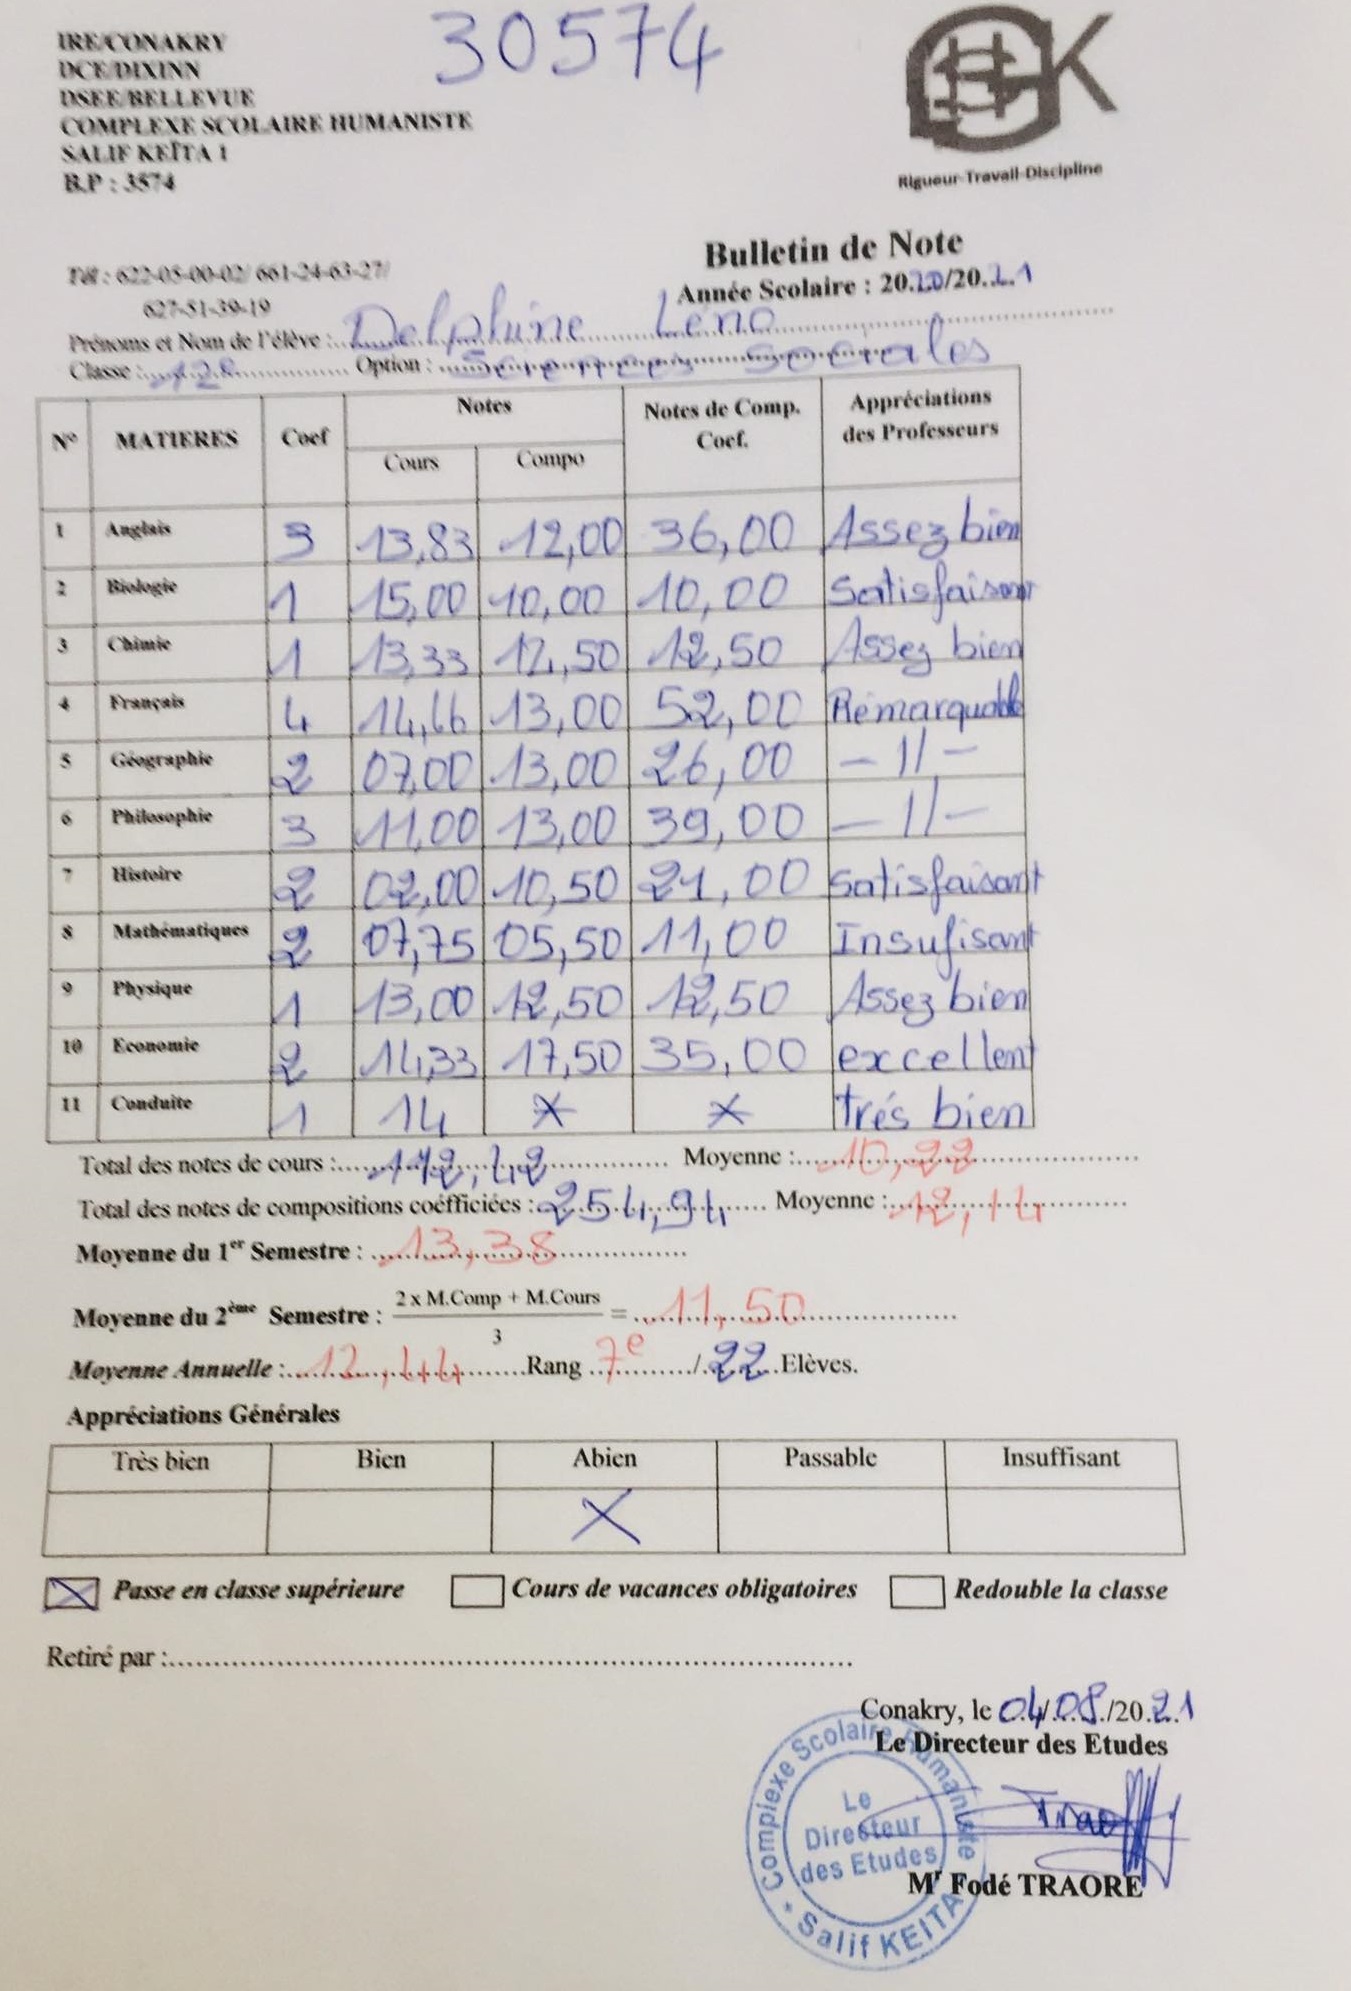 30574
IRE/CONAKRY
DCE/DIXINN
DSEE/BELLEVUE
COMPLEXE SCOLAIRE HUMANISTE
SALIF KEÏTA 1
B.P : 3574
Rigueur-Travail-Discipline
Bulletin de Note
Tél : 622-05-00-02/ 661-24-63-27/
Année Scolaire : 20.20/20.21
627-51-39-19
Prénoms et Nom de l'élève : Delphine Léno
Classe : 12e Option : Sciences sociales
N° MATIERES Coef Notes Notes de Comp. Coef. Appréciations des Professeurs
Cours Compo
1 Anglais 3 13,83 12,00 36,00 Assez bien
2 Biologie 1 15,00 10,00 10,00 Satisfaisant
3 Chimie 1 13,33 12,50 12,50 Assez bien
4 Français 4 14,66 13,00 52,00 Remarquable
5 Géographie 2 07,00 13,00 26,00 - // -
6 Philosophie 3 11,00 13,00 39,00 - // -
7 Histoire 2 02,00 10,50 21,00 Satisfaisant
8 Mathématiques 2 07,75 05,50 11,00 Insufisant
9 Physique 1 13,00 12,50 12,50 Assez bien
10 Economie 2 14,33 17,50 35,00 excellent
11 Conduite 1 14 × × trés bien
Total des notes de cours : 112,42 Moyenne : 10,22
Total des notes de compositions coéfficiées : 254,94 Moyenne : 12,14
Moyenne du 1er Semestre : 13,38
Moyenne du 2ème Semestre : 2 x M.Comp + M.Cours / 3 = 11,50
Moyenne Annuelle : 12,44 Rang 7e / 22 Elèves.
Appréciations Générales
Très bien Bien Abien Passable Insuffisant
X
X Passe en classe supérieure Cours de vacances obligatoires Redouble la classe
Retiré par :
Conakry, le 04/08/2021
Le Directeur des Etudes
Complexe Scolaire Humaniste
Le
Directeur
des Etudes
Salif KEITA
Mr Fodé TRAORE